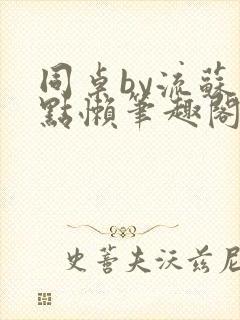 同桌by流蘇
點懶筆趣閣
史蒂夫沃茲尼